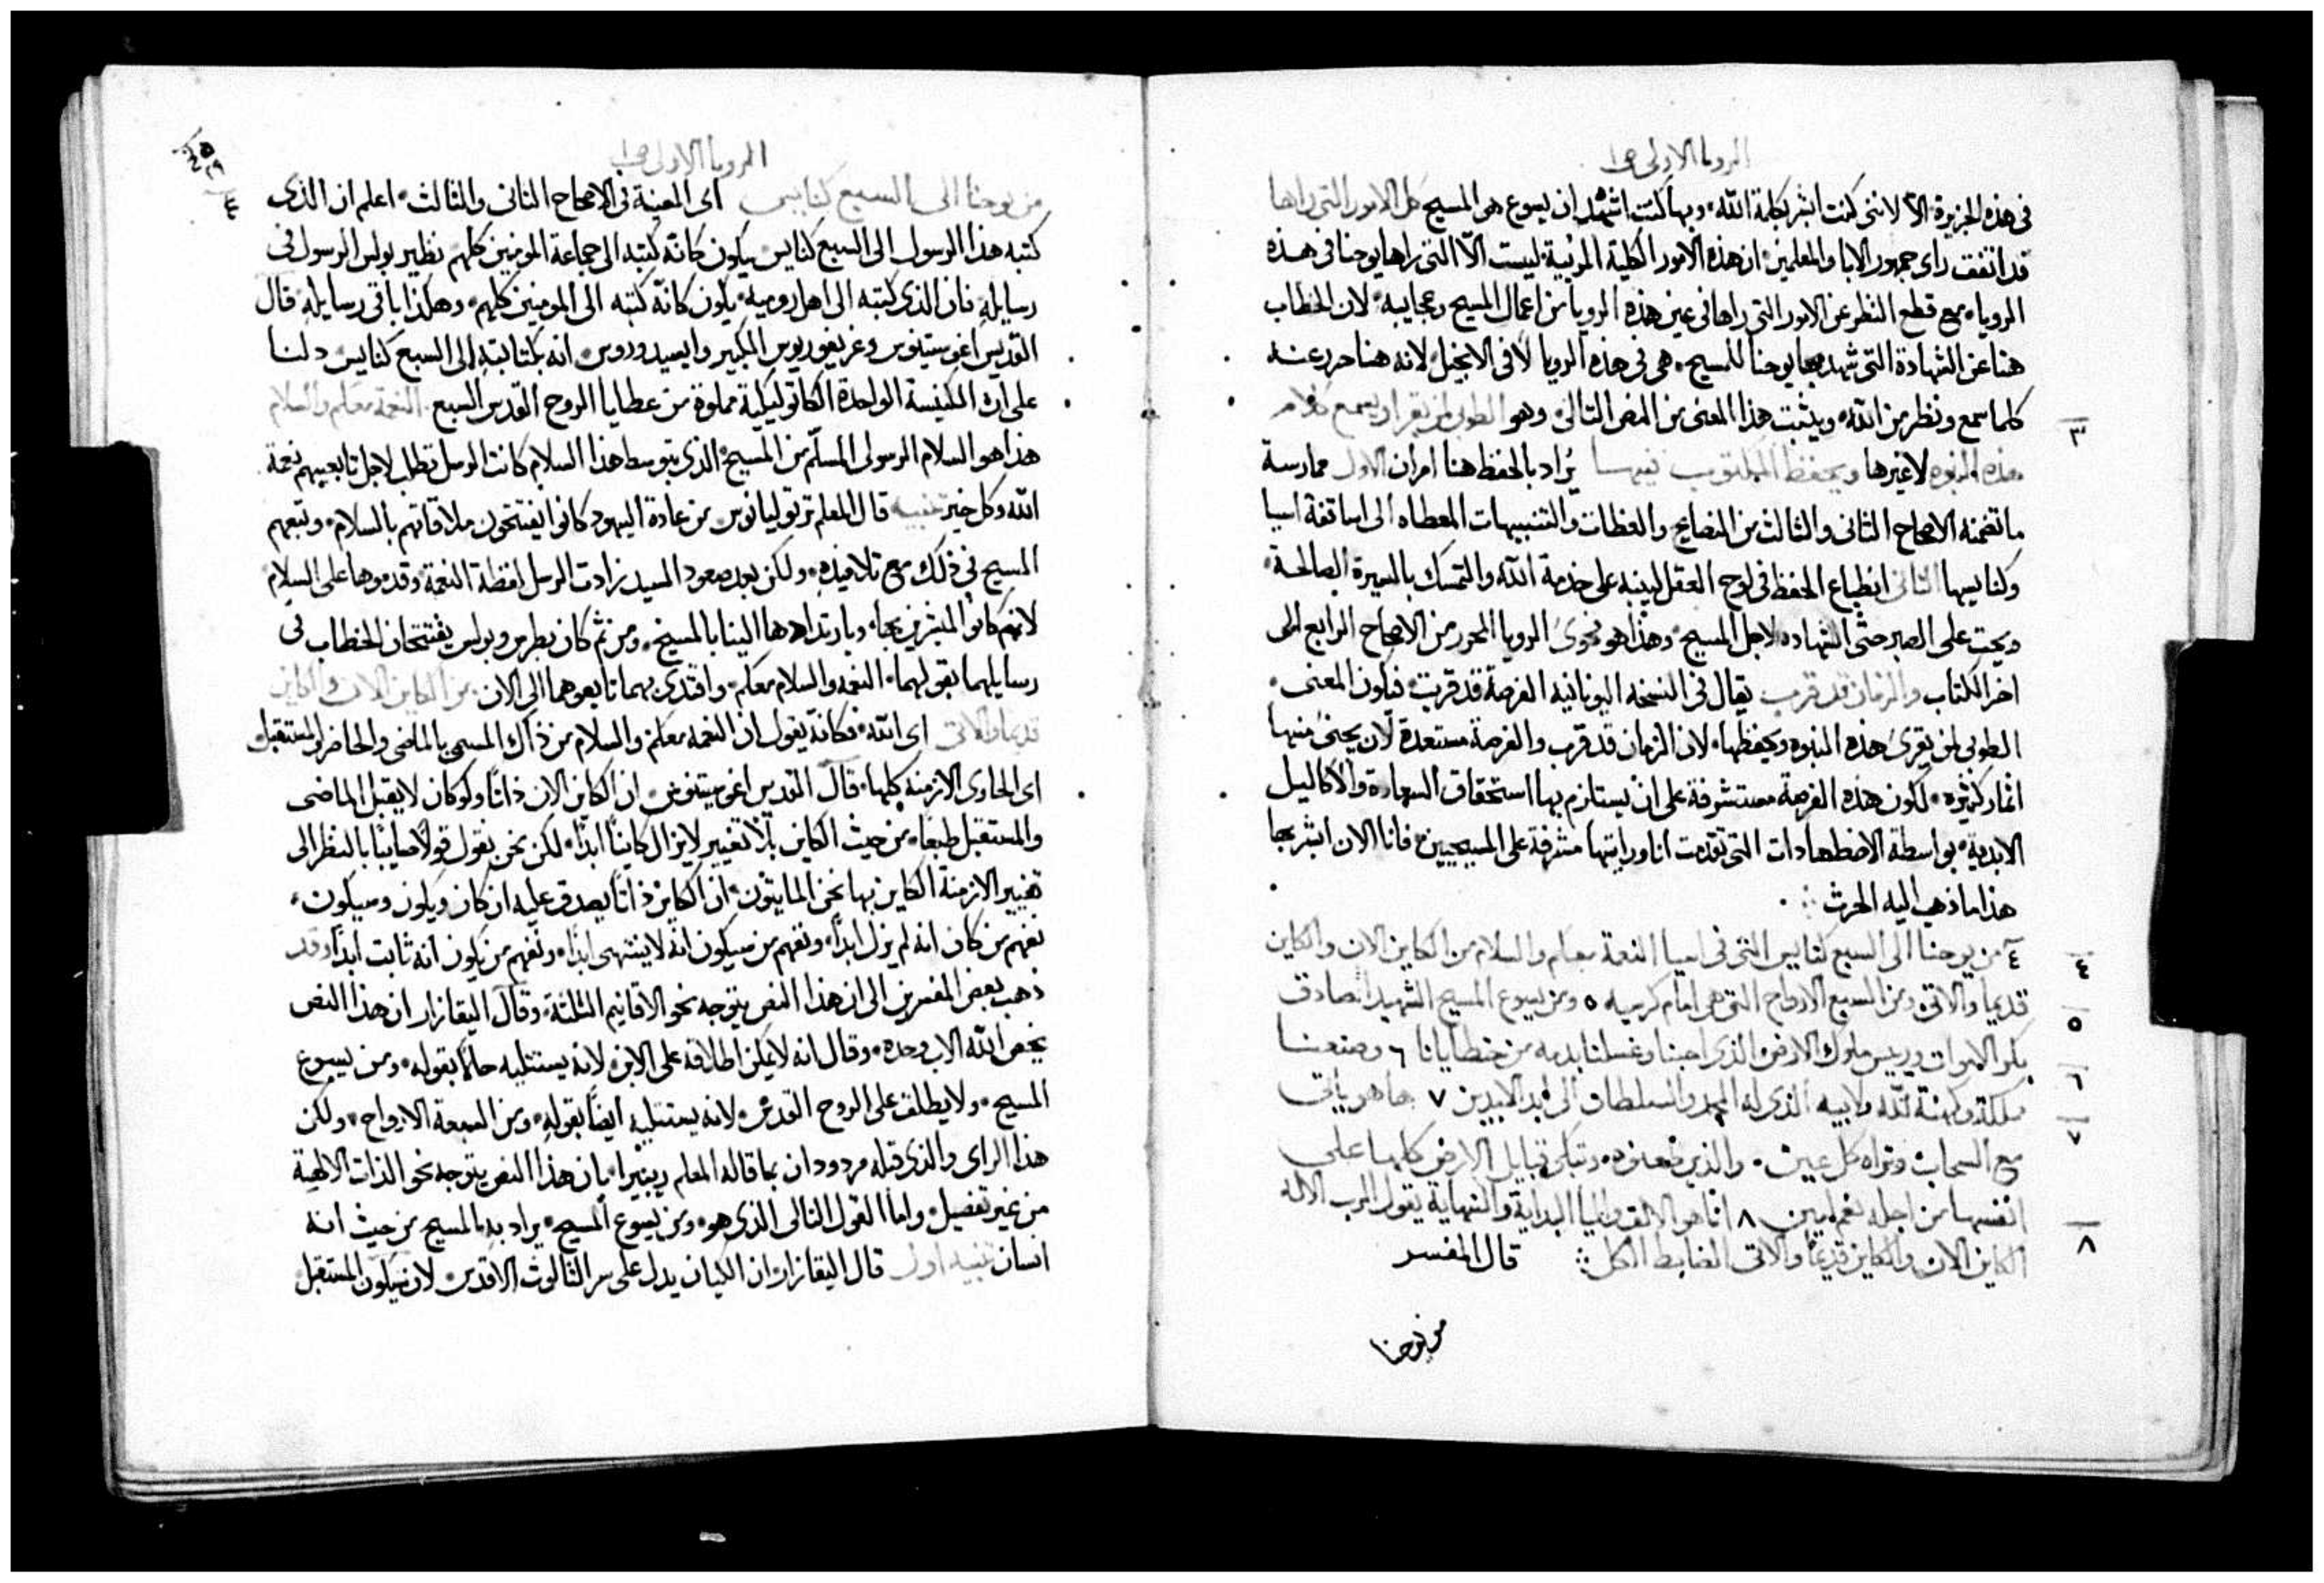 الرويا الاولى ص١
في هذه الجزيرة الا لانني كنت ابشر بكلمة الله، وبها كنت اشهد ان يسوع هو المسيح كل الامور التي راها
قد اتفقت راى جمهور الابا والمعلمين ان هذه الامور الكلية المرئية ليست الّا التي راها يوحنا في هذه
الرويا، مع قطع النظر عن الامور التي راها في عين هذه الرويا من اعمال المسيح وعجايبه، لان الخطاب
هنا عن الشهادة التي شهد بها يوحنا للمسيح، هي في هذه الرويا لا في الانجيل لانه هنا حرر عنه
كلما سمع ونظر من الله، ويثبت هذا المعنى من النص التالي وهو الطوبى لمن يقرا ويسمع كلام
٣
هذه النبوه لاغيرها ويحفظ المكتوب فيها يُراد بالحفظ هنا امران الاول ممارسة
ما تضمنه الاصحاح الثاني والثالث من النصايح والعظات والتنبيهات المعطاه الى اساقفة اسيا
وكنايسها الثاني انطباع الحفظ في لوح العقل لينبه على خدمة الله والتمسك بالسيرة الصالحة
ويحث على الصبر حتى الشهاده لاجل المسيح، وهذا هو فحوى الرويا المحرر من الاصحاح الرابع الى
اخر الكتاب والزمان قد قرب يقال في النسخه اليونانيه الفرصة قد قربت، فيكون المعنى
الطوبى لمن يقرى هذه النبوه ويحفظها، لان الزمان قد قرب والفرصة مستعدة لان يجنى منها
اثمار كثيره، لكون هذه الفرصة مستشرفة على ان يستلزم بها استحقاق السعادة والاكاليل
الابدية، بواسطة الاضطهادات التي تقدمت انا ورايتها مشرفة على المسيحيين، فانا الان ابشر بها
هذا ما ذهب اليه الحرث
٤ من يوحنا الى السبع كنايس التي في اسيا النعمة معكم والسلام من الكاين الان والكاين
٤
قديما والاتي، ومن السبع الارواح التي هي امام كرسيه ٥ ومن يسوع المسيح الشهيد الصادق
٥
بكر الاموات وريس ملوك الارض الذي احبنا وغسلنا بدمه من خطايانا ٦ وصنعنا
٦
مملكة وكهنة لله ولابيه الذي له المجد والسلطان الى ابد الابدين ٧ ها هو ياتي
٧
مع السحاب وتراه كل عين، والذين طعنوه، وتبكي قبايل الارض كلها على
انفسها من اجله نعم امين ٨ انا هو الالف واليا البداية والنهاية يقول الرب الاله
٨
الكاين الان والكاين قديمًا والاتي الضابط الكل قال المفسر
من يوحنا
الرويا الاولى ص١
من يوحنا الى السبع كنايس اى المعينة في الاصحاح الثاني والثالث، اعلم ان الذى
٤
كتبه هذا الرسول الى السبع كنايس يكون كانّه كتبه الى جماعة المومنين كلهم، نظير بولس الرسول في
رسايله، فان الذى كتبه الى اهل رومية، يكون كانّه كتبه الى المومنين كلهم، وهكذا باقي رسايله، قال
القديس اغوستينوس وغريغوريوس الكبير وايسيدوروس، انه بكتابته الى السبع كنايس دلنا
على ان الكنيسة الواحدة الكاتوليكية مملوة من عطايا الروح القدس السبع، النعمة معكم والسلام
هذا هو السلام الرسولى المسلّم من المسيح، الذى بتوسط هذا السلام كانت الرسل تطلب لاجل تابعيهم نعمة
الله وكل خير تنبيه قال المعلم ترتوليانوس من عادة اليهود كانوا يفتتحون ملاقاتهم بالسلام، وتبعهم
المسيح في ذلك مع تلاميذه، ولكن بعد صعود السيد زادت الرسل لفظة النعمة، وقدموها على السلام
لانهم كانوا المبشرين بها، وبارتدادها الينا بالمسيح، ومن ثم كان بطرس وبولس يفتتحان الخطاب في
رسايلهما بقولهما، النعمه والسلام معكم، واقتدى بهما تابعوهما الى الان، من الكاين الان والكاين
قديما والاتي اى الله، فكانّه يقول ان النعمه معكم والسلام من ذاك المسمى بالماضى والحاضر والمستقبل
اى الحاوى الازمنة كلها، قال القديس اغوستينوس ان الكاين الان ذاتًا ولو كان لايقبل الماضى
والمستقبل طبعًا، من حيث الكاين بلا تغيير لايزال كاينًا ابدًا، لكن نحن نقول قولًا صايبًا بالنظر الى
تغيير الازمنة الكاين بها نحن المايتون، ان الكاين ذاتًا يصدق عليه ان كان ويكون وسيكون،
نفهم من كان انه لم يزل ابدًا، ونفهم من سيكون انه لا ينتهى ابدًا، ونفهم من يكون انه ثابت ابدًا وقد
ذهب بعض المفسرين الى ان هذا النص يتوجه نحو الاقانيم الثلثة، وقال اليقازار ان هذا النص
يخص الله الاب وحده، وقال انه لا يمكن اطلاقه على الابن لانه يستتليه حالًا بقوله، ومن يسوع
المسيح، ولا يطلق على الروح القدس، لانه يستتليه ايضًا بقوله، ومن السبعة الارواح، ولكن
هذا الراى والذى قبله مردودان بما قاله المعلم ريبيرا، بان هذا النص يتوجه نحو الذات الالهية
من غير تفصيل، واما القول التالى الذى هو، ومن يسوع المسيح، يراد به المسيح من حيث انه
انسان تنبيه اول قال اليقازار ان الكيان يدل على سر الثالوث الاقدس، لان سيكون المستقبل